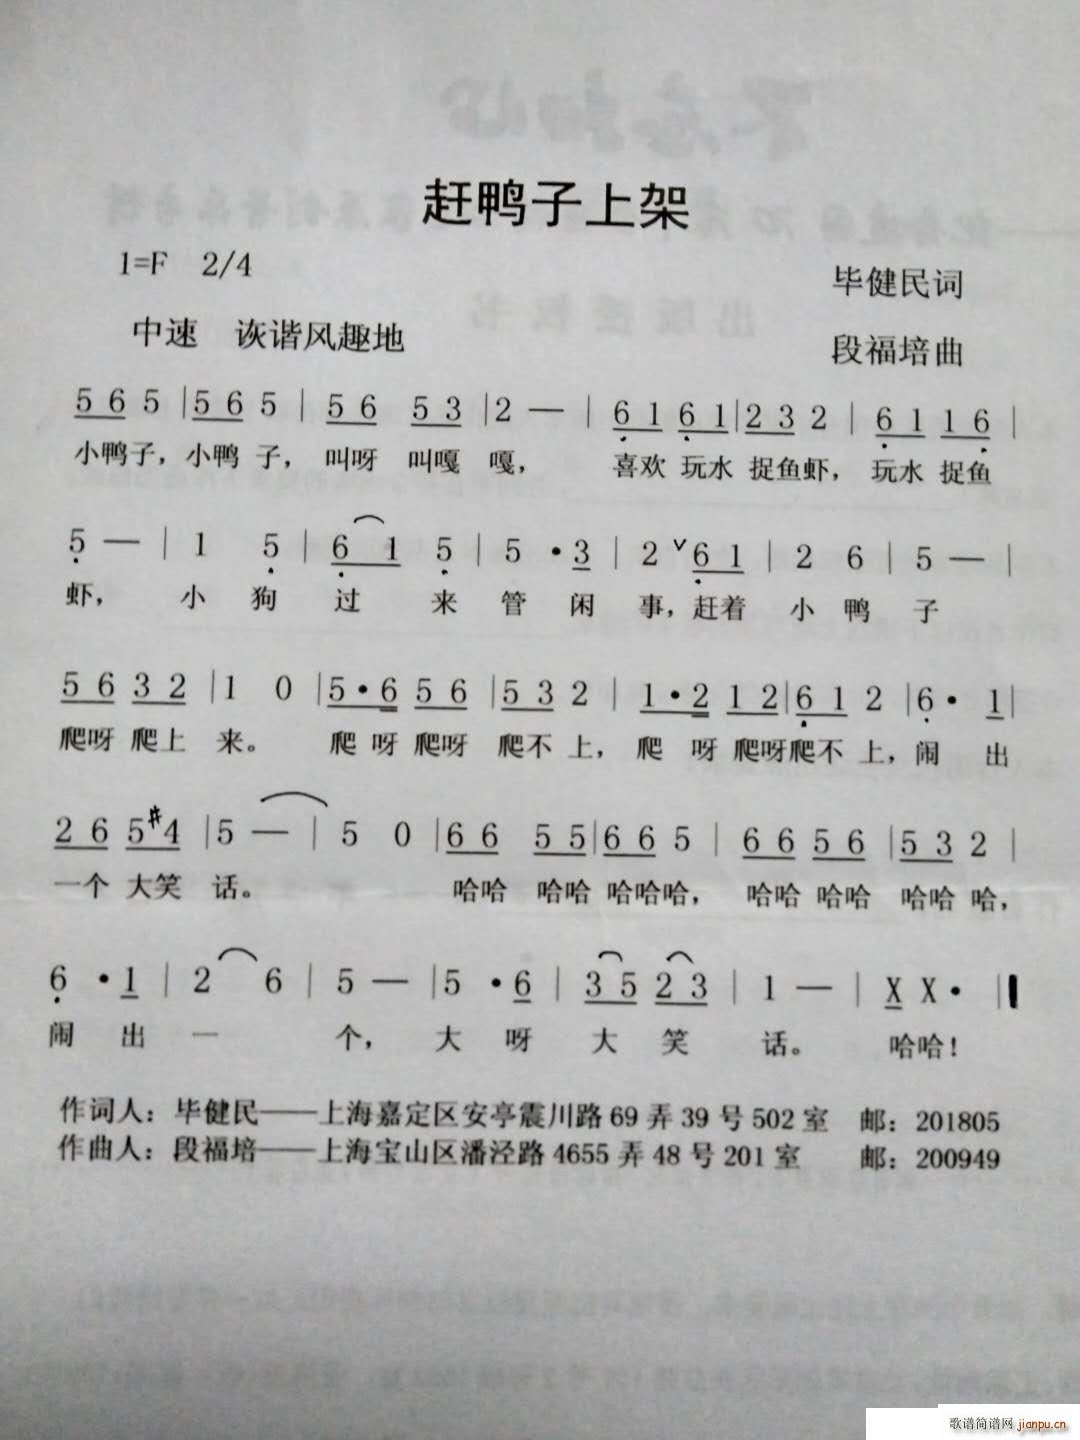 赶鸭子上架
1=F 2/4
毕健民词
中速 诙谐风趣地
段福培曲
5 6 5 | 5 6 5 | 5 6 5 3 | 2 — | 6 1 6 1 | 2 3 2 | 6 1 1 6 |
小鸭子，小鸭 子， 叫呀 叫嘎 嘎， 喜欢 玩水 捉鱼虾，玩水 捉鱼
5 — | 1 5 | 6 1 5 | 5 · 3 | 2 ∨ 6 1 | 2 6 | 5 — |
虾， 小 狗 过 来 管 闲 事，赶着 小 鸭 子
5 6 3 2 | 1 0 | 5 · 6 5 6 | 5 3 2 | 1 · 2 1 2 | 6 1 2 | 6 · 1 |
爬呀 爬上 来。 爬 呀 爬呀 爬不 上，爬 呀 爬呀爬不 上，闹 出
2 6 5 #4 | 5 — | 5 0 | 6 6 5 5 | 6 6 5 | 6 6 5 6 | 5 3 2 |
一个 大笑 话。 哈哈 哈哈 哈哈哈， 哈哈 哈哈 哈哈 哈，
6 · 1 | 2 6 | 5 — | 5 · 6 | 3 5 2 3 | 1 — | X X · ||
闹 出 一 个， 大 呀 大 笑 话。 哈哈！
作词人：毕健民——上海嘉定区安亭震川路 69 弄 39 号 502 室 邮：201805
作曲人：段福培——上海宝山区潘泾路 4655 弄 48 号 201 室 邮：200949
歌谱简谱网 jianpu.cn